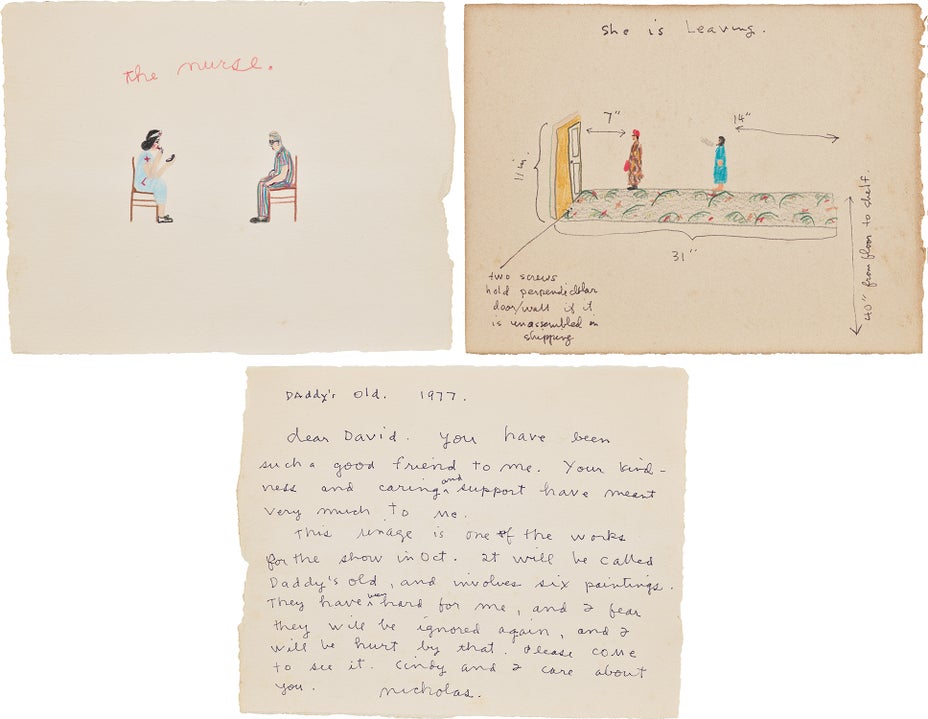 the nurse.
she is leaving.
7"
14"
11 in.
31"
40" from floor to shelf.
two screws
hold perpendicular
door/wall if it
is unassembled in
shipping
DAddy's old. 1977.
dear David. you have been
such a good friend to me. Your kind-
ness and caring and support have meant
very much to me.
This image is one of the works
for the show in Oct. It will be called
Daddy's old, and involves six paintings.
They have been hard for me, and I fear
they will be ignored again, and I
will be hurt by that. Please come
to see it. Cindy and I care about
you. nicholas.